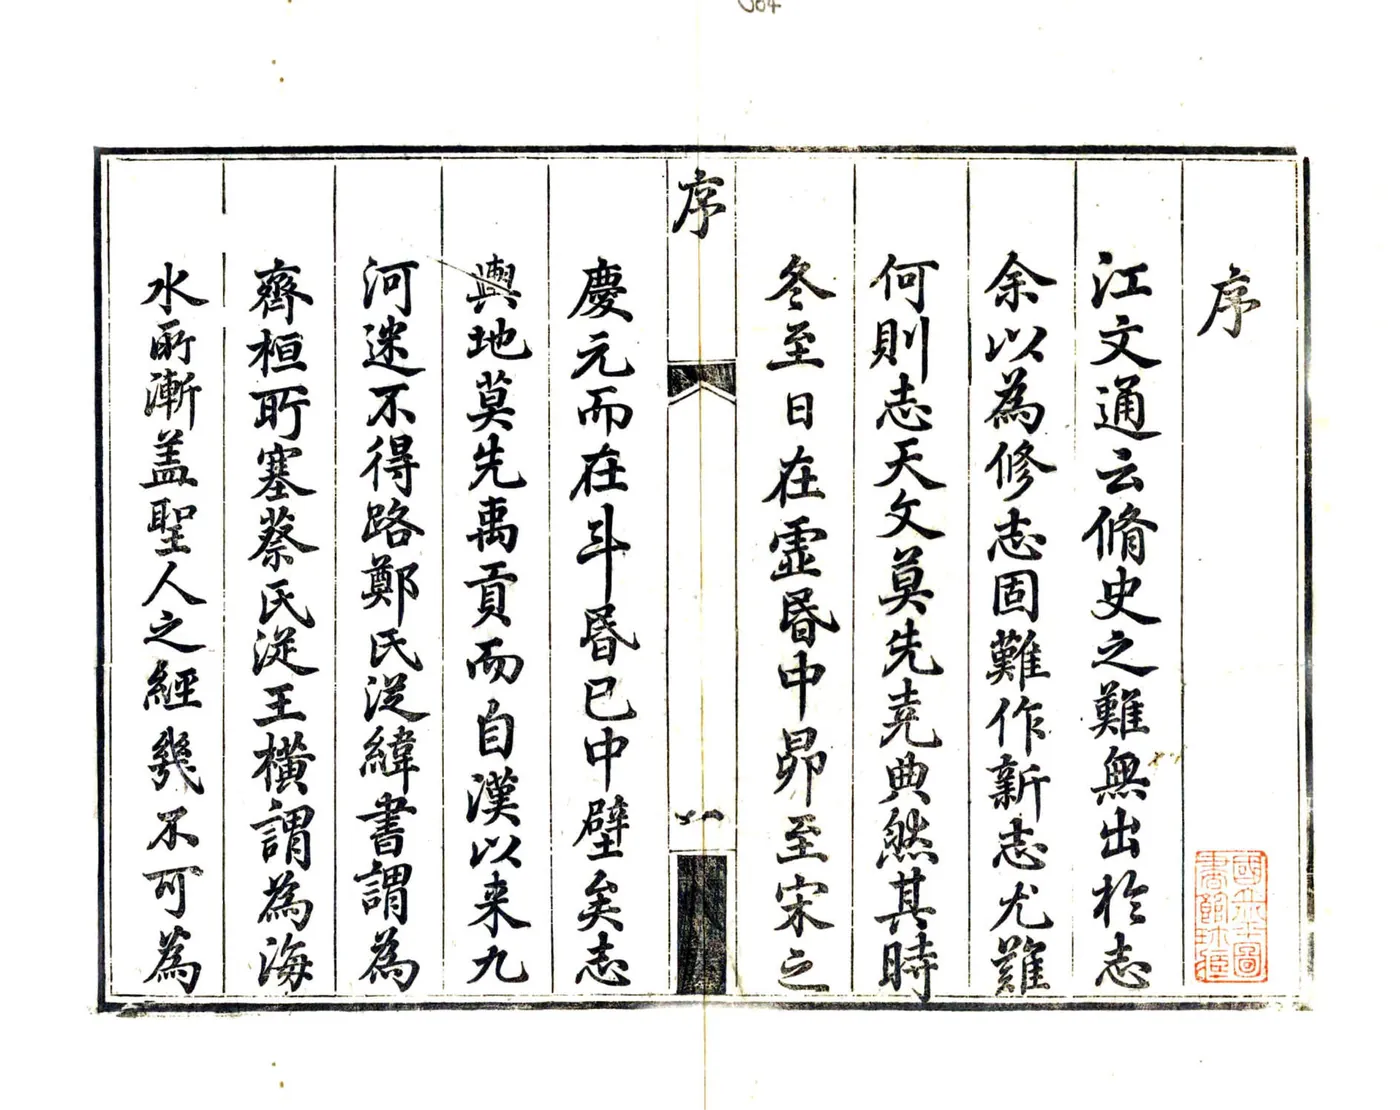 序
江文通云脩史之難無出於志
余以為修志固難作新志尤難
何則志天文莫先堯典然其時
冬至日在虛昬中昴至宋之
序
一
慶元而在斗昬已中壁矣志
輿地莫先禹貢而自漢以来九
河迷不得路鄭氏從緯書謂為
齊桓所塞蔡氏從王橫謂為海
水所漸盖聖人之經幾不可為